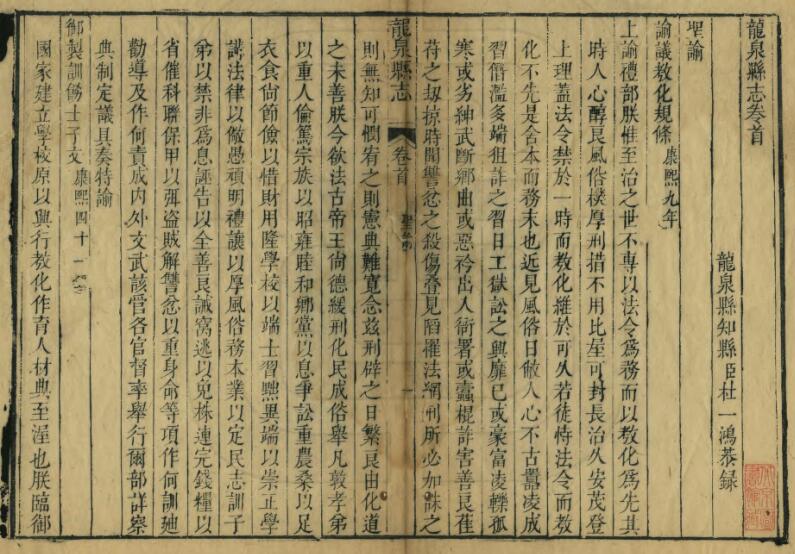 龍泉縣志卷首
龍泉縣知縣臣杜一鴻恭錄
聖諭
諭議教化規條康熙九年
上諭禮部朕惟至治之世不專以法令為務而以教化為先其
時人心醇良風俗樸厚刑措不用比屋可封長治久安茂登
上理蓋法令禁於一時而教化維於可久若徒恃法令而教
化不先是舍本而務末也近見風俗日敝人心不古囂凌成
習僭濫多端狙詐之習日工獄訟之興靡已或豪富凌轢孤
寒或劣紳武斷鄉曲或惡衿出入衙署或蠹棍詐害善良萑
苻之刼掠時聞讐忿之殺傷疊見陷罹法網刑所必加誅之
龍泉縣志
卷首
聖諭
一
則無知可憫宥之則憲典難寬念茲刑辟之日繁良由化道
之未善朕今欲法古帝王尚德緩刑化民成俗舉凡敦孝弟
以重人倫篤宗族以昭雍睦和鄉黨以息爭訟重農桑以足
衣食尚節儉以惜財用隆學校以端士習黜異端以崇正學
講法律以儆愚頑明禮讓以厚風俗務本業以定民志訓子
弟以禁非為息誣告以全善良誡窩逃以免株連完錢糧以
省催科聯保甲以弭盜賊解讐忿以重身命等項作何訓廸
勸導及作何責成內外文武該管各官督率舉行爾部詳察
典制定議具奏特諭
御製訓飭士子文康熙四十一年
國家建立學校原以興行教化作育人材典至渥也朕臨御